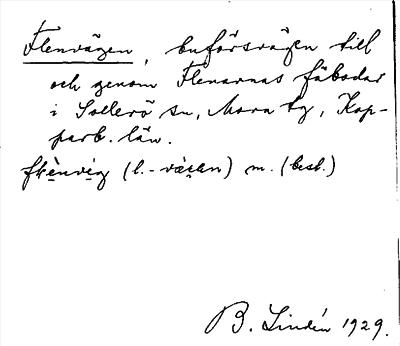 Flenvägen, buförsvägen till
och genom Flenarnas fäbodar
i Sollerö sn, Mora tg, Kop-
parb. län.
flènvèg (l. -vä̀gen) m. (best.)
B. Lindén 1929.